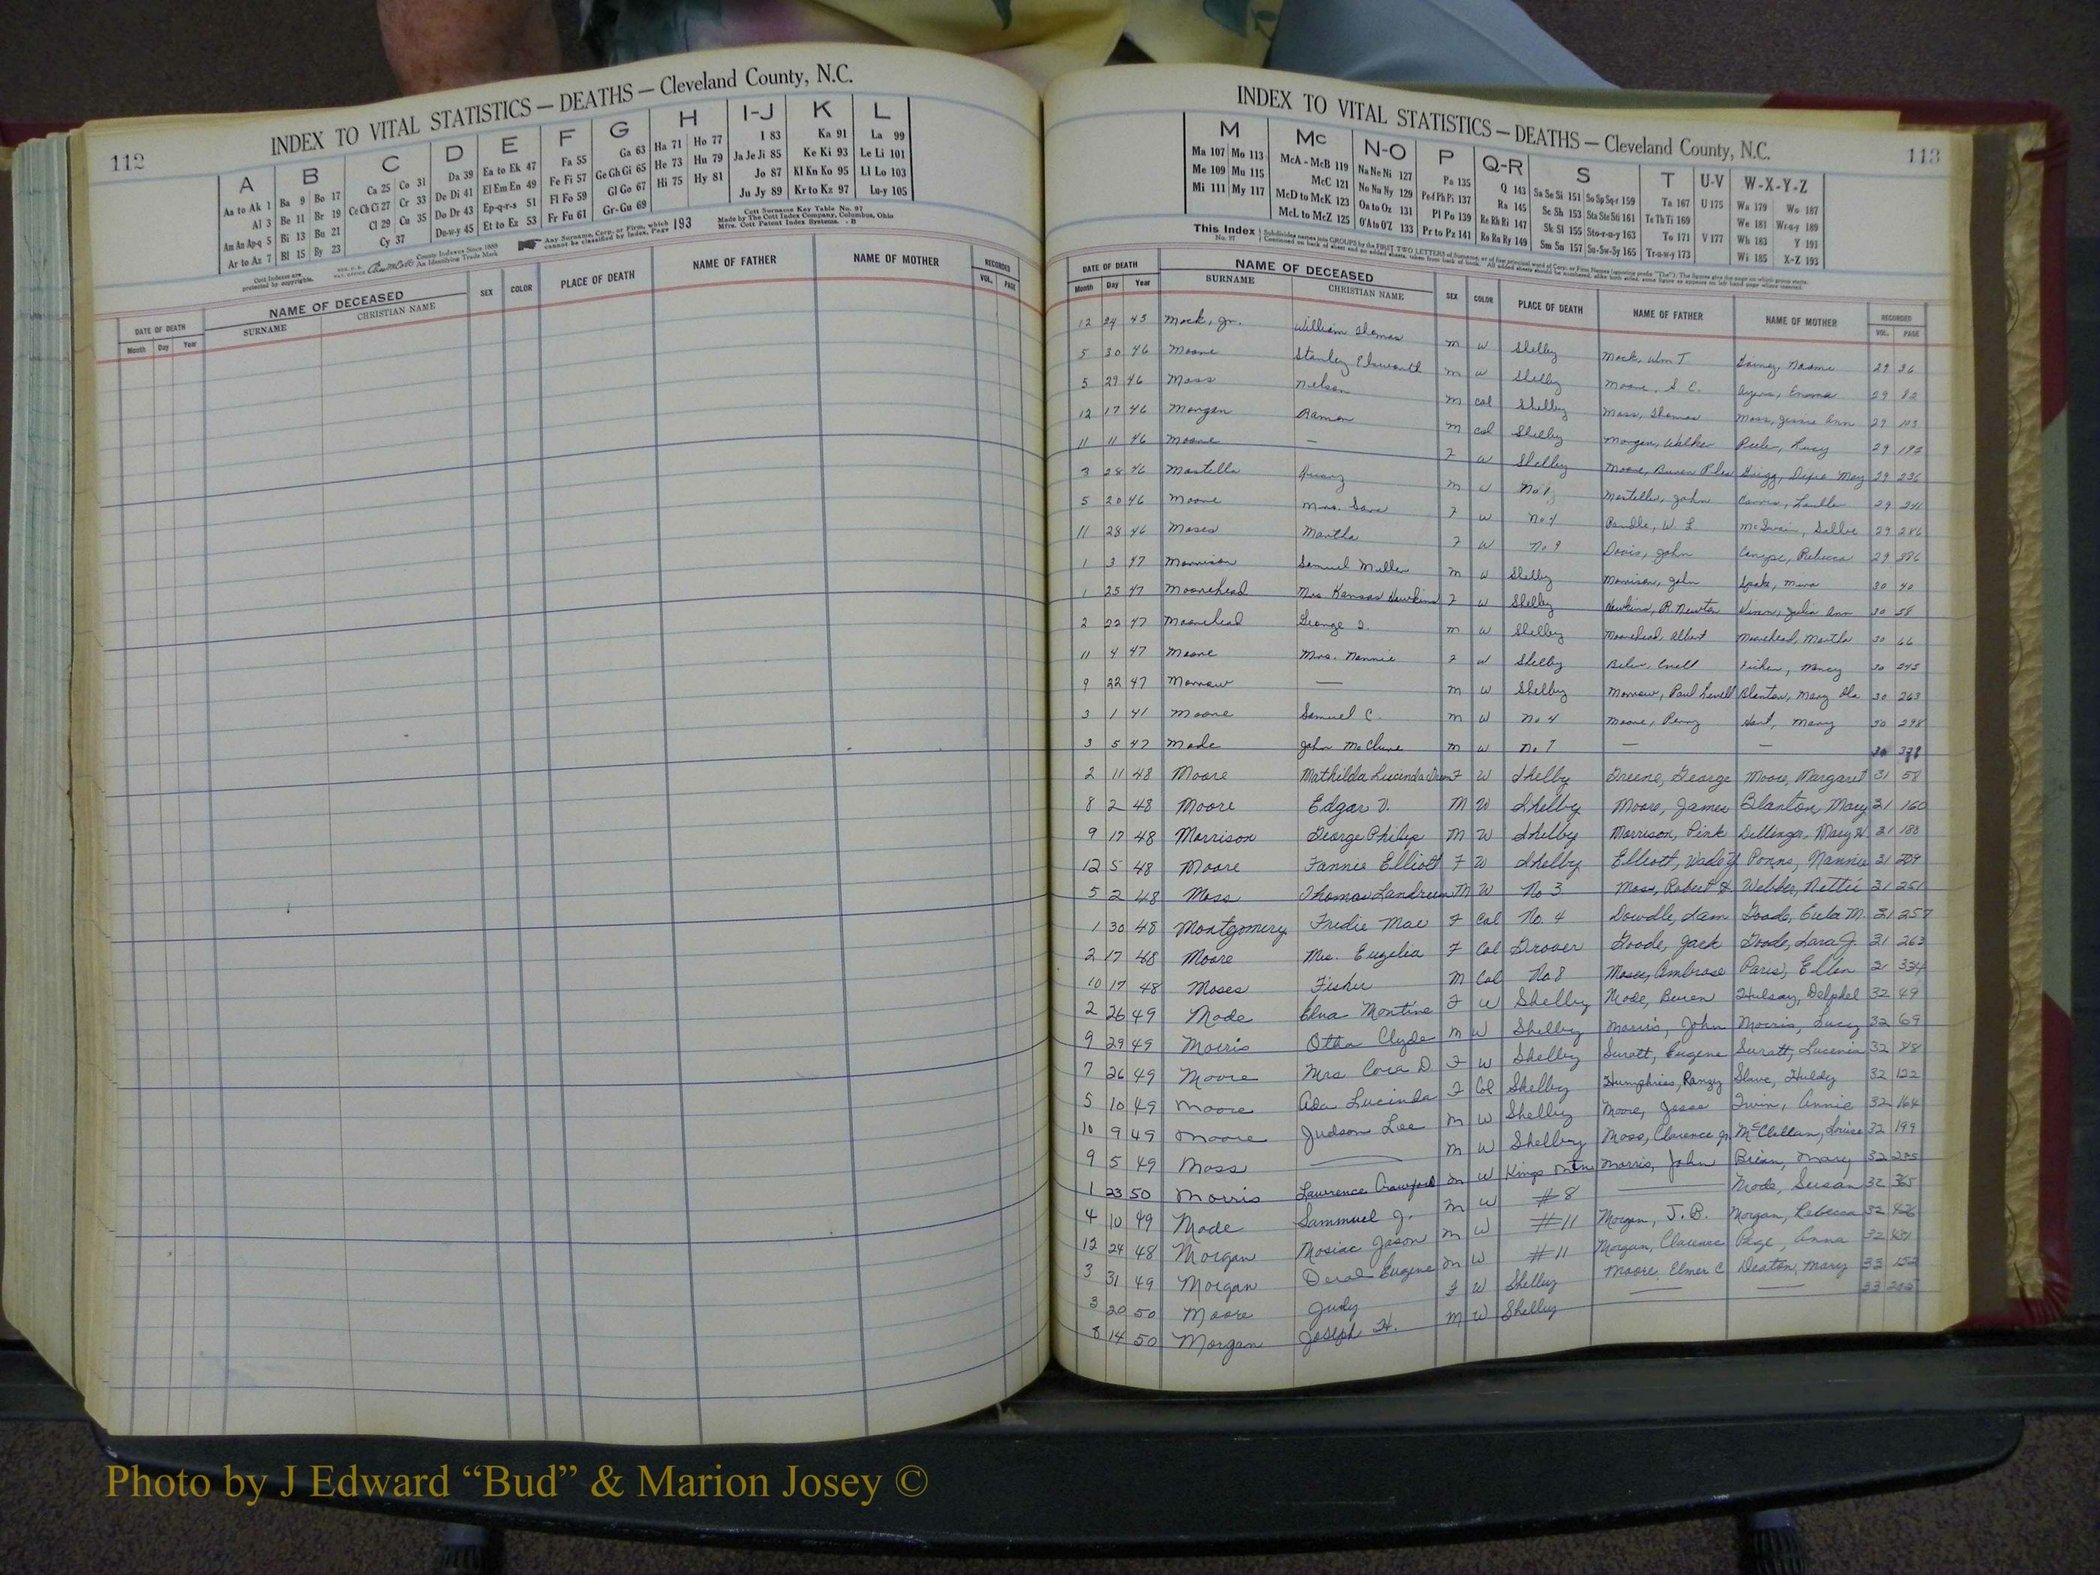 112
INDEX TO VITAL STATISTICS — DEATHS — Cleveland County, N.C.
A B C D E F G H I-J K L
Aa to Ak 1 Ba 9 Bo 17 Ca 25 Co 31 Da 39 Ea to Ek 47 Fa 55 Ga 63 Ha 71 Ho 77 I 83 Ka 91 La 99
Al 3 Be 11 Br 19 Ce Ch Ci 27 Cr 33 De Di 41 El Em En 49 Fe Fi 57 Ge Gh Gi 65 He 73 Hu 79 Ja Je Ji 85 Ke Ki 93 Le Li 101
Am An Ap-q 5 Bi 13 Bu 21 Cl 29 Cu 35 Do Dr 43 Ep-q-r-s 51 Fl Fo 59 Gl Go 67 Hi 75 Hy 81 Jo 87 Kl Kn Ko 95 Ll Lo 103
Ar to Az 7 Bl 15 By 23 Cy 37 Du-w-y 45 Et to Ez 53 Fr Fu 61 Gr-Gu 69 Ju Jy 89 Kr to Kz 97 Lu-y 105
Cott Indexes are protected by copyrights.
County Indexes Since 1888
An Identifying Trade Mark
Any Surname, Corp. or Firm, which cannot be classified by Index, Page 193
Cott Surname Key Table No. 97
Made by The Cott Index Company, Columbus, Ohio
Mfrs. Cott Patent Index Systems. - B
DATE OF DEATH NAME OF DECEASED SEX COLOR PLACE OF DEATH NAME OF FATHER NAME OF MOTHER RECORDED
Month Day Year SURNAME CHRISTIAN NAME VOL. PAGE
INDEX TO VITAL STATISTICS — DEATHS — Cleveland County, N.C.
113
M Mc N-O P Q-R S T U-V W-X-Y-Z
Ma 107 Mo 113 McA - McB 119 Na Ne Ni 127 Pa 135 Q 143 Sa Se Si 151 So Sp Sq-r 159 Ta 167 U 175 Wa 179 Wo 187
Me 109 Mu 115 McC 121 No Nu Ny 129 Pe-f Ph Pi 137 Ra 145 Sc Sh 153 Sta Ste Sti 161 Te Th Ti 169 We 181 Wr-u-y 189
Mi 111 My 117 McD to McK 123 Oa to Oz 131 Pl Po 139 Re Rh Ri 147 Sk Sl 155 Sto-r-u-y 163 To 171 V 177 Wh 183 Y 191
McL to McZ 125 O'A to O'Z 133 Pr to Pz 141 Ro Ru Ry 149 Sm Sn 157 Su-Sw-Sy 165 Tr-u-w-y 173 Wi 185 X-Z 193
This Index No. 97
DATE OF DEATH NAME OF DECEASED SEX COLOR PLACE OF DEATH NAME OF FATHER NAME OF MOTHER RECORDED
Month Day Year SURNAME CHRISTIAN NAME VOL. PAGE
12 24 45 Mock, Jr. William Thomas M W Shelby Mock, Wm T Naomi 29 36
5 30 46 Moore Stanley Elsworth M W Shelby Moore, S. C. Ayers, Emma 29 82
5 29 46 Moss Nelson M Col Shelby Moss, Thomas Moss, Jessie Ann 29 113
12 17 46 Morgan Ramon M Col Shelby Morgan, Walker Lucy 29 192
11 11 46 Moore — F W Shelby Moore, Grigg, Dixie May 29 236
3 28 46 Mostella M W No 1 Mostella, John 29 241
5 20 46 Moore Mrs. Sara F W No 4 W. L. McSwain, Sallie 29 286
11 28 46 Moses Martha F W No 9 Davis, John Rebecca 29 386
1 3 47 Morrison Samuel Miller M W Shelby Morrison, John 30 40
1 25 47 Moorehead Mrs Kansas Hawkins F W Shelby Hawkins, P. Newton Julia Ann 30 58
2 22 47 Moorehead George M W Shelby Moorehead, Albert Moorehead, Martha 30 66
11 4 47 Moore Mrs. Nannie F W Shelby Nancy 30 245
9 22 47 Morrow — M W Shelby Morrow, Paul Blanton, Mary 30 263
3 1 41 Moore Samuel C. M W No 4 Moore, Perry Mary 30 298
3 5 47 Mode John McClure M W No 7 — — 30 378
2 11 48 Moore Mathilda Lucinda F W Shelby Greene, George Moore, Margaret 31 58
8 2 48 Moore Edgar M W Shelby Moore, James Blanton, Mary 31 160
9 17 48 Morrison George Philip M W Shelby Morrison, Pink Dellinger, Mary 31 180
12 5 48 Moore Fannie Elliott F W Shelby Elliott, Nannie 31 209
5 2 48 Moss Thomas Landrum M W No 3 Moss, Robert Webber, Nettie 31 251
1 30 48 Montgomery Fredie Mae F Col No. 4 Dowdle, Sam Goode, Eula M. 31 257
2 17 48 Moore Mrs. Eugelia F Col Grover Goode, Jack Goode, Lara J. 31 263
10 17 48 Moses Fisher M Col No. 8 Moses, Ambrose Paris, Ellen 31 334
2 26 49 Mode Elva Montine F W Shelby Mode, Buren 32 49
9 29 49 Morris Otha Clyde M W Shelby Morris, John Morris, Lucy 32 69
7 26 49 Moore Mrs Cora D. F W Shelby Suratt, Eugene Suratt, Lucenia 32 88
5 10 49 Moore Ada Lucinda F Col Shelby Humphries, Huldy 32 122
10 9 49 Moore Judson Lee M W Shelby Moore, Jesse Annie 32 164
9 5 49 Moss — M W Shelby Moss, Clarence Jr. McClellan, Louise 32 199
1 23 50 Morris Lawrence Crawford M W Kings Mtn Morris, John Mary 32
4 10 49 Mode Sammuel J. M W #8 — Mode, Susan 32 365
12 24 48 Morgan Mosiac Jason M W #11 Morgan, J. B. Morgan, Rebecca 32 426
3 31 49 Morgan Eugene M W #11 Morgan, Clarence Page, Anna 32
3 20 50 Moore Judy F W Shelby Moore, Elmer C Deaton, Mary 33 152
8 14 50 Morgan Joseph H. M W Shelby — — 33
Photo by J Edward “Bud” & Marion Josey ©